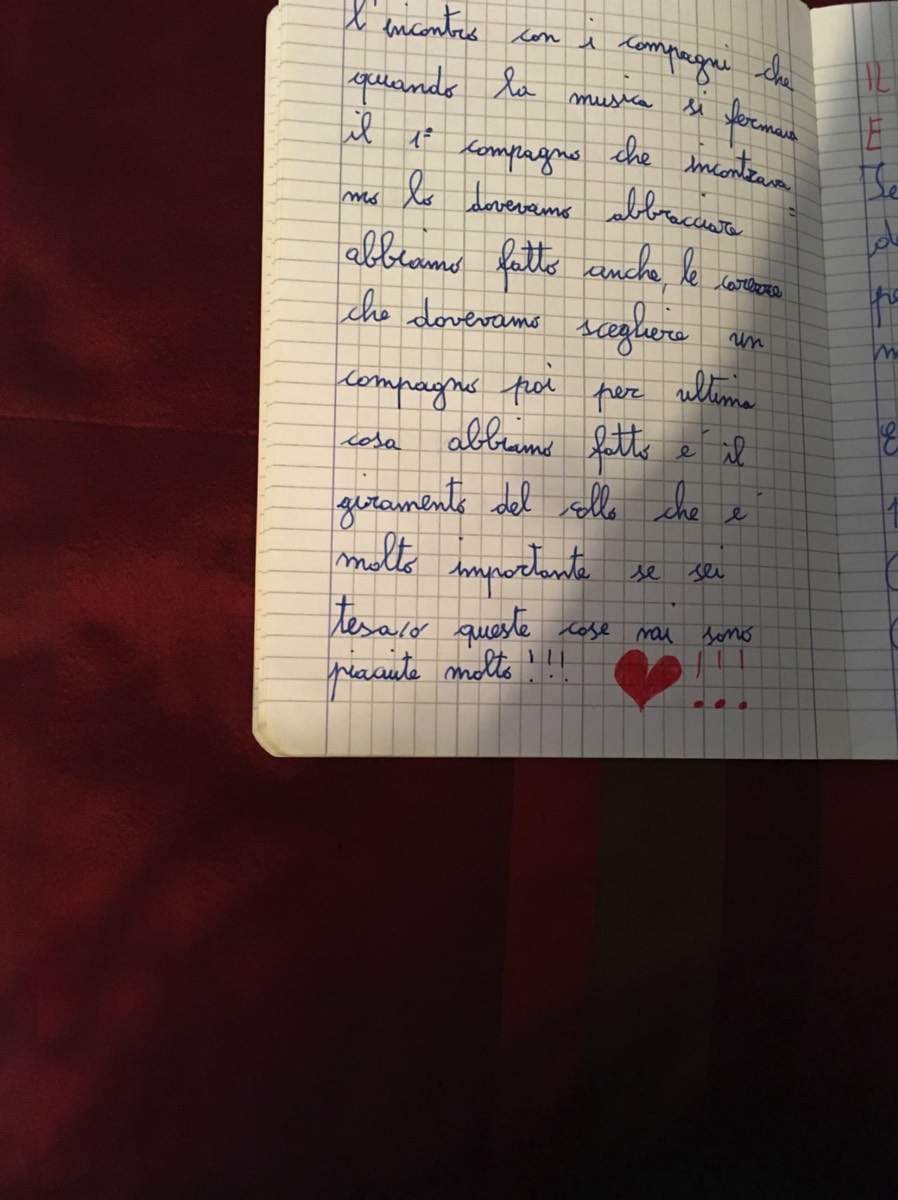 l'incontro con i compagni che
quando la musica si fermava
il 1° compagno che incontrava=
mo lo dovevamo abbracciare
abbiamo fatto anche, le carezze
che dovevamo scegliere un
compagno poi per ultima
cosa abbiamo fatto é il
giramento del collo che é
molto importante se sei
tesa/o queste cose mi sono
piaciute molto!!! ❤!!!
IL
E
Se